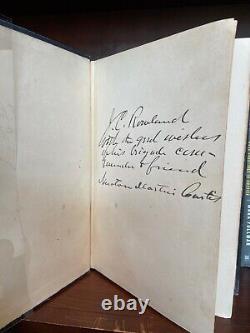 J. C. Rowland
with the good wishes
of his brigade com-
mander & friend
Newton Martin Curtis